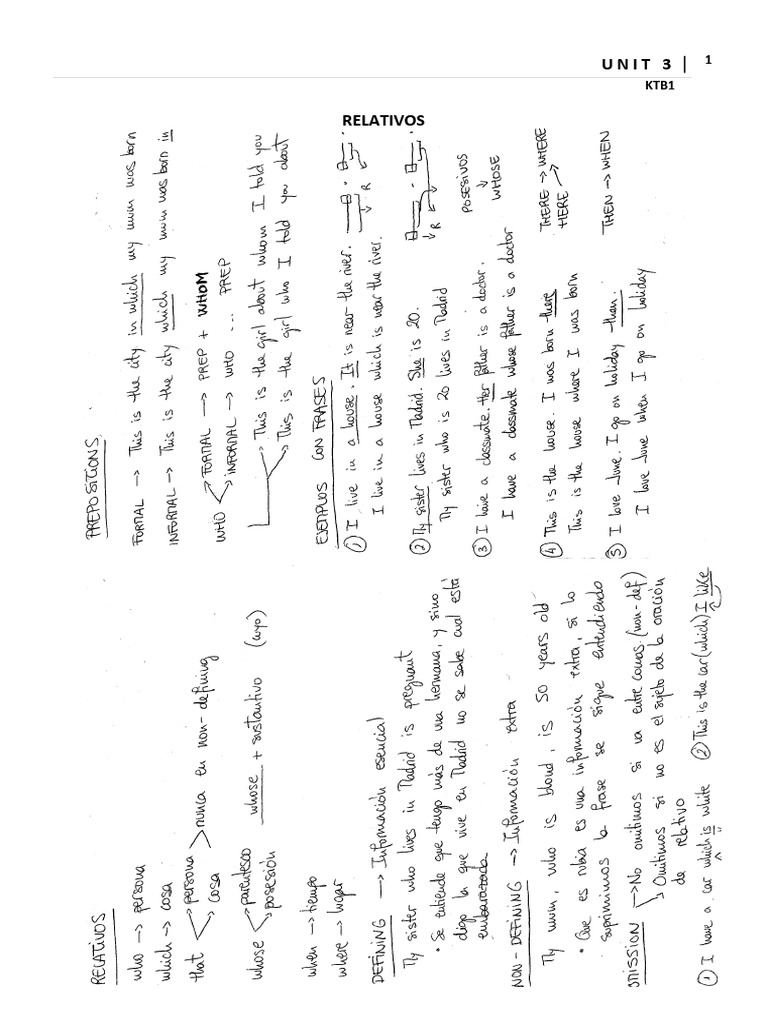 UNIT 3 | 1
KTB1
RELATIVOS
RELATIVOS
who → persona
which → cosa
that persona
cosa > nunca en non-defining
whose parentesco
posesión whose + sustantivo (cuyo)
when → tiempo
where → lugar
DEFINING → Información esencial
My sister who lives in Madrid is pregnant
• Se entiende que tengo más de una hermana, y sino
digo la que vive en Madrid no se sabe cual está
embarazada
NON-DEFINING → Información extra
My mum, who is blond, is 50 years old
• Que es rubia es una información extra, si lo
suprimimos la frase se sigue entendiendo
OMISSION → No omitimos si va entre comas (non-def)
→ Omitimos si no es el sujeto de la oración
de relativo
① I have a car which is white ② This is the car (which) I like
PREPOSITIONS
FORMAL → This is the city in which my mum was born
INFORMAL → This is the city which my mum was born in
WHO FORMAL → PREP + WHOM
INFORMAL → WHO ... PREP
This is the girl about whom I told you
This is the girl who I told you about
EJEMPLOS CON FRASES
① I live in a house. It is near the river.
R
I live in a house which is near the river.
② My sister lives in Madrid. She is 20.
R
My sister who is 20 lives in Madrid
③ I have a classmate. Her father is a doctor.
POSESIVOS
↓
WHOSE
I have a classmate whose father is a doctor
④ This is the house. I was born there
THERE → WHERE
HERE
This is the house where I was born
⑤ I love June. I go on holiday then.
THEN → WHEN
I love June when I go on holiday